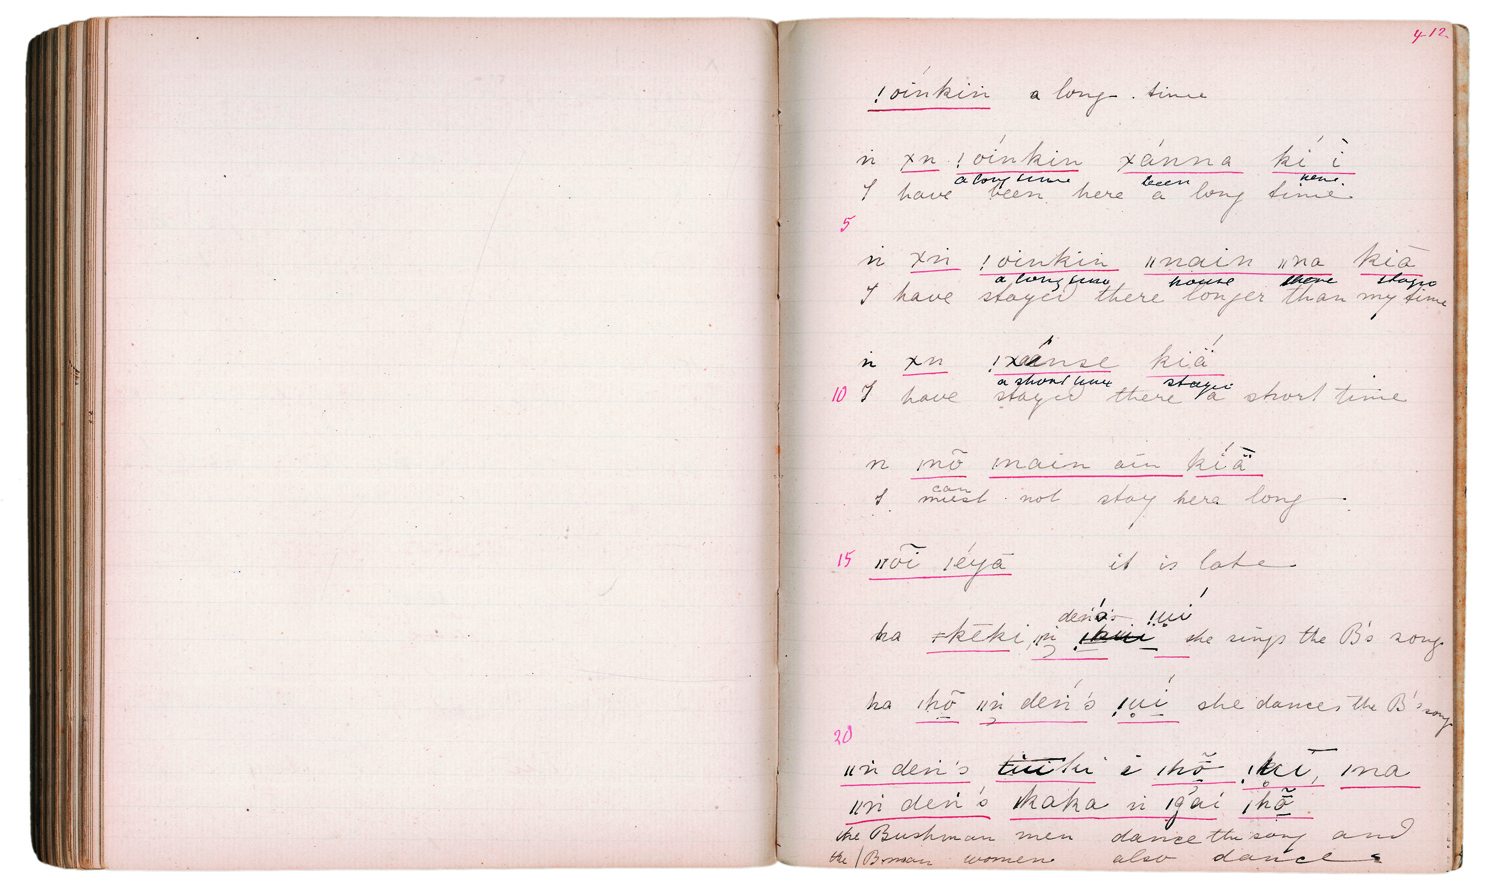 412
!óinkin a long time
ṅ xṅ !óinkin xánna kí ì
a long time been here
I have been here a long time
5
ṅ xṅ !oinkin ǁnain ǁna kiā
a long time house there stayed
I have stayed there longer than my time
ṅ xṅ kiä́
a short time stayed
10 I have stayed there a short time
n ǀnō ǀnain ain kíä
can
I must not stay here long
15 ǁōi ǀéyā it is late
ha ǂkēki she sings the B's song
ha ǀhō ǁṅ deṅ's she dances the B's song
20
ǁṅ deṅ's ǀna
ǁṅ deṅ's ǀkaka ṅ
the Bushman men dance the song and
the Bman women also dance